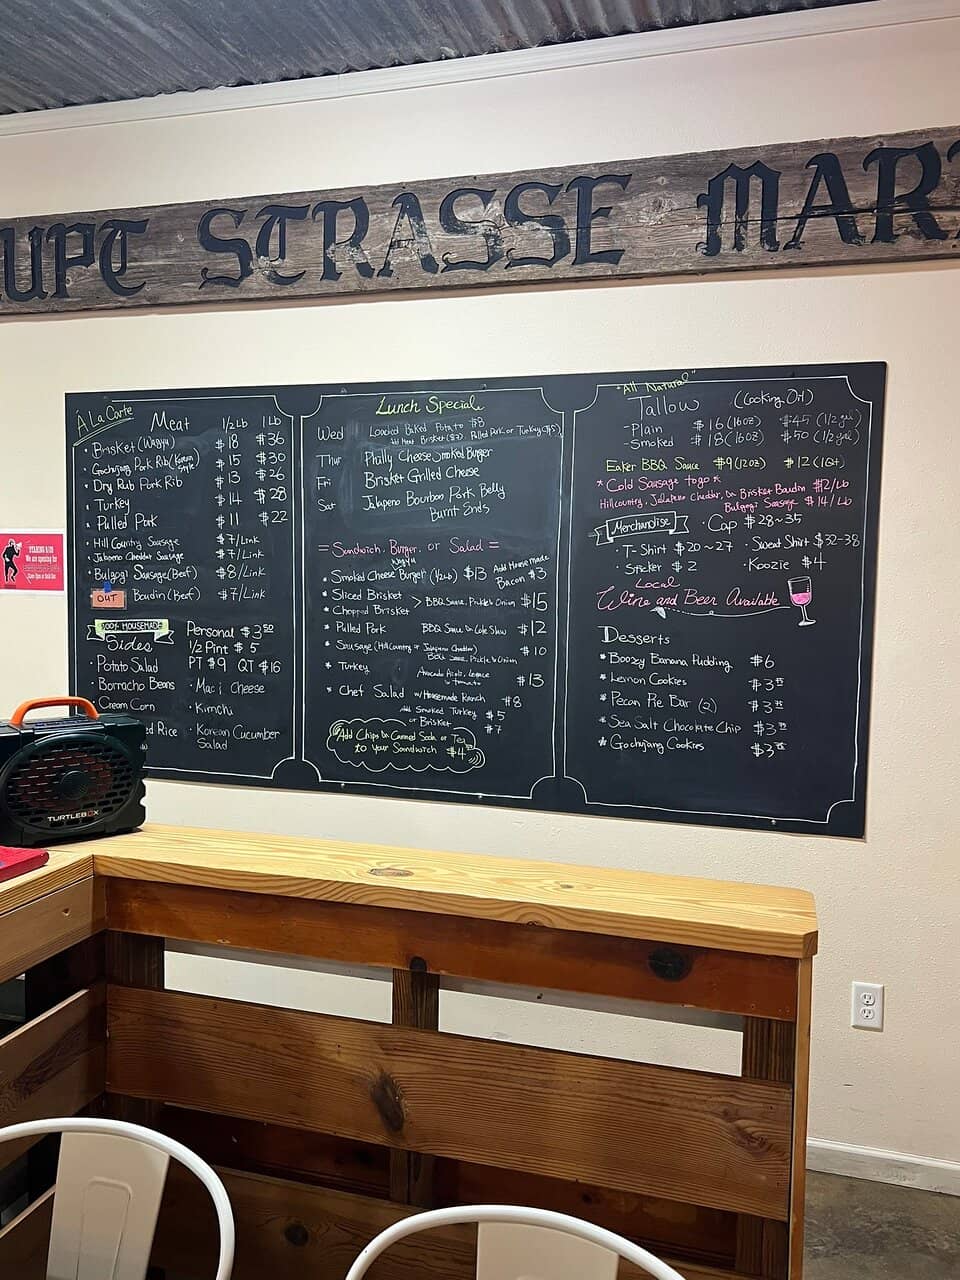 UPT STRASSE MAR
À La Carte
Meat 1/2 Lb 1 Lb
• Brisket (Wagyu) $18 $36
• Gochujang Pork Rib (Korean Style) $15 $30
• Dry Rub Pork Rib $13 $26
• Turkey $14 $28
• Pulled Pork $11 $22
• Hill Country Sausage $7/Link
• Jalapeno Cheddar Sausage $7/Link
• Bulgogi Sausage (Beef) $8/Link
OUT Boudin (Beef) $7/Link
100% HOUSEMADE
Sides
Personal $3.50
1/2 Pint $5
PT $9 QT $16
• Potato Salad
• Borracho Beans
• Cream Corn
ed Rice
• Mac i Cheese
• Kimchi
• Korean Cucumber
Salad
Lunch Special
Wed Loaded Baked Potato $8
Add Meat Brisket ($7), Pulled Pork or Turkey ($5)
Thur Philly Cheese Smoked Burger
Fri Brisket Grilled Cheese
Sat Jalapeno Bourbon Pork Belly
Burnt Ends
= Sandwich, Burger, or Salad =
Wagyu
• Smoked Cheese Burger (1/2 Lb) $13 Add House made
Bacon $3
• Sliced Brisket
• Chopped Brisket > BBQ Sauce, Pickle & Onion $15
• Pulled Pork BBQ Sauce Cole Slaw $12
• Sausage (Hill Country or Jalapeno Cheddar) $10
BBQ Sauce, Pickle & Onion
• Turkey Avocado Aioli, Lettuce
& tomato $13
• Chef Salad w/ Housemade Ranch $8
Add Smoked Turkey $5
or Brisket $7
Add Chips & Canned Soda or Tea
to your Sandwich $4
"All Natural"
Tallow (Cooking Oil)
-Plain $16 (16oz) $45 (1/2 gal)
-Smoked $18 (16oz) $50 (1/2 gal)
Eaker BBQ Sauce $9 (12oz) $12 (1Qt)
* Cold Sausage to go *
Hill country, Jalapeno Cheddar, Brisket Boudin $12/Lb
Bulgogi Sausage $14/Lb
Merchandise
• Cap $28~35
• T-Shirt $20~27
• Sweat Shirt $32-38
• Sticker $2
• Koozie $4
Local
Wine and Beer Available
Desserts
* Boozy Banana Pudding $6
* Lemon Cookies
* Pecan Pie Bar (2)
* Sea Salt Chocolate Chip
* Gochujang Cookies
TURTLEBOX
We are opening for